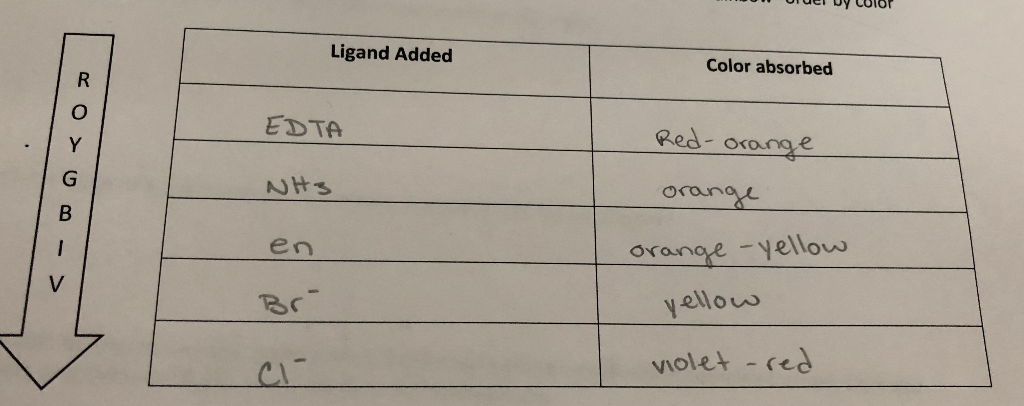 order by color
Ligand Added Color absorbed
R
O
Y
G
B
I
V
EDTA Red-orange
NH3 orange
en orange-yellow
Br⁻ yellow
Cl⁻ violet-red